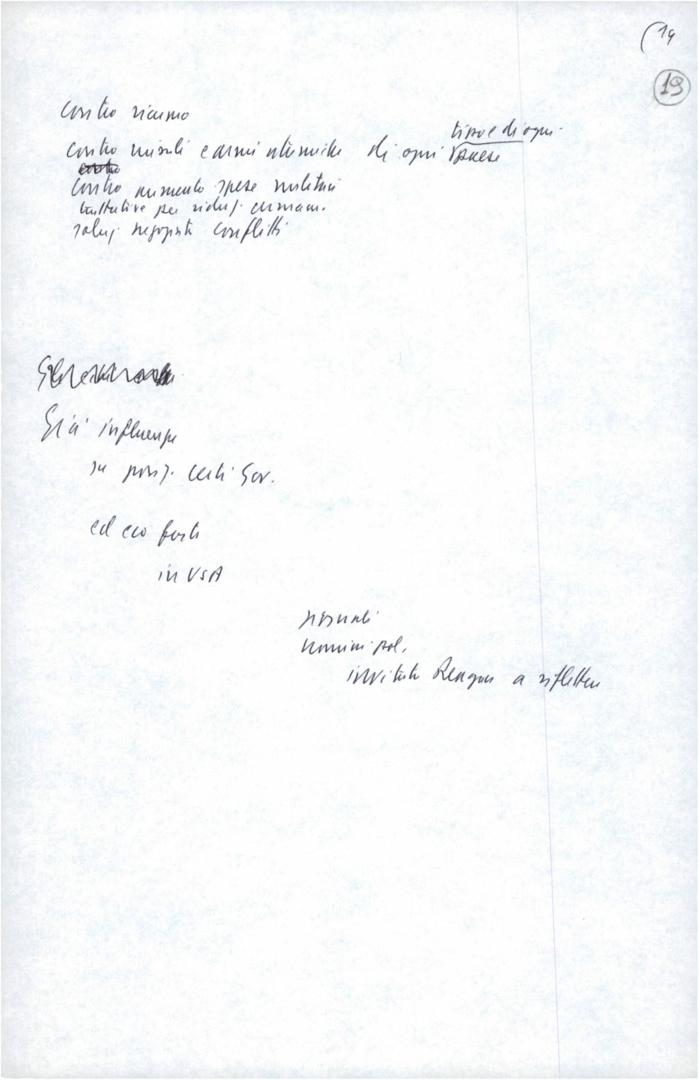 (14
19
contro riarmo
tipo e di ogni
contro missili e armi atomiche di ogni paese
contro
contro aumento spese militari
trattative per riduz. armam.
soluz. negoziati conflitti
Già influenze
su posiz. certi Gov.
ed eco forte
in USA
giornali
uomini pol.
invitato Reagan a riflettere